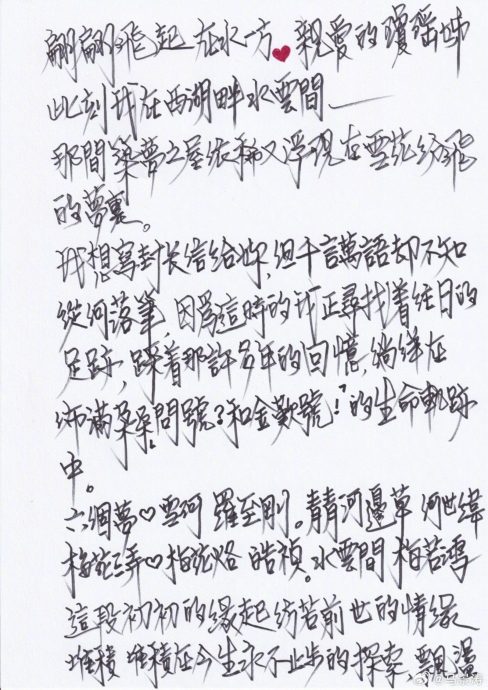 翩翩飛起在水一方❤親愛的瓊瑤姊
此刻我在西湖畔水雲間——
那間築夢之屋依稀又浮現在雪花紛飛
的夢裏。
我想寫封长信给妳,但千言萬語却不知
從何落筆,因爲這時的我正尋找着往日的
足跡,踩着那許多年的回憶,徜徉在
佈滿朶朶問號?和金歎號!的生命軌跡
中。
六個夢♡雪珂 羅至剛。青青河邊草 何世緯
梅花三弄♡梅花烙 皓禎。水雲間 梅若鴻
這段初初的緣起彷若前世的情缘
堆積 堆積在今生永不止步的探索,飄漫